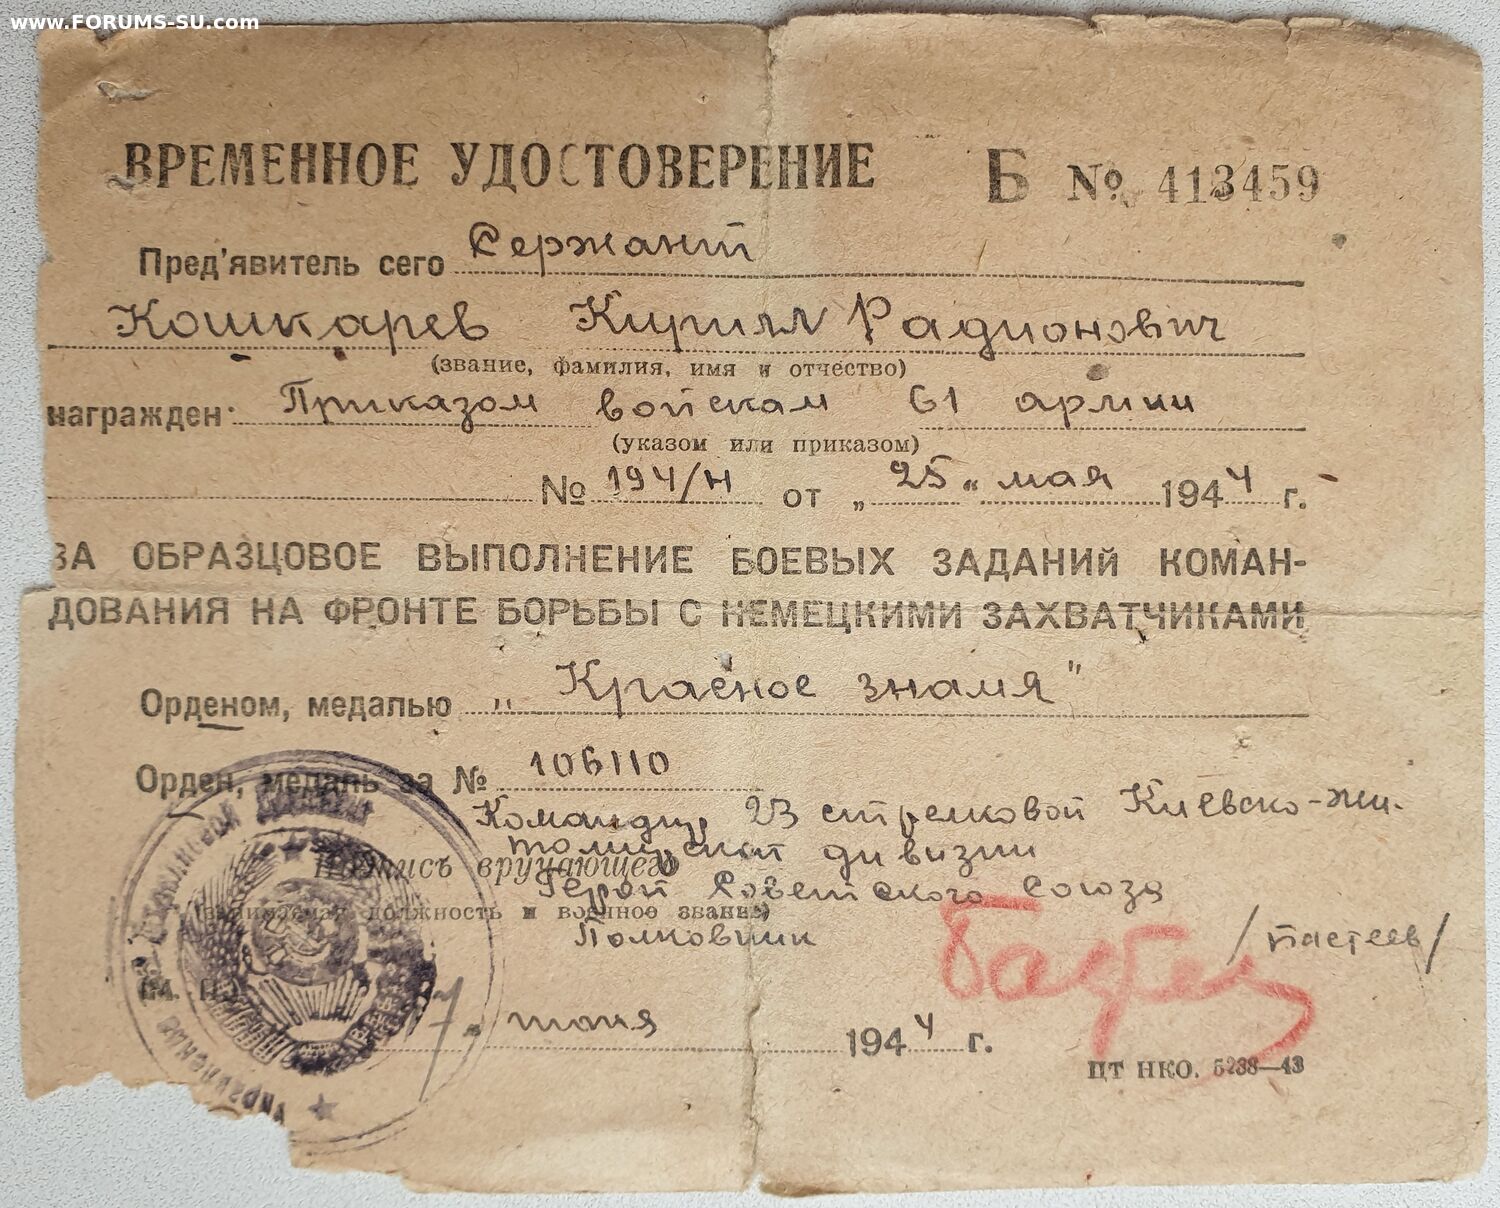 www.FORUMS-SU.com
ВРЕМЕННОЕ УДОСТОВЕРЕНИЕ Б № 413459
Пред'явитель сего Сержант
Кошкарев Кирилл Радионович
(звание, фамилия, имя и отчество)
награжден: Приказом войскам 61 армии
(указом или приказом)
№ 194/н от „25“ мая 1944 г.
ЗА ОБРАЗЦОВОЕ ВЫПОЛНЕНИЕ БОЕВЫХ ЗАДАНИЙ КОМАН-
ДОВАНИЯ НА ФРОНТЕ БОРЬБЫ С НЕМЕЦКИМИ ЗАХВАТЧИКАМИ
Орденом, медалью „Красное знамя"
Орден, медаль за № 106110
Командир 23 стрелковой Киевско-Жи-
томирской дивизии
Подпись вручающего
Герой Советского Союза
(занимаемая должность и военное звание)
Полковник /Бастеев/
М. П.
1944 г.
ЦТ НКО. 5238—43